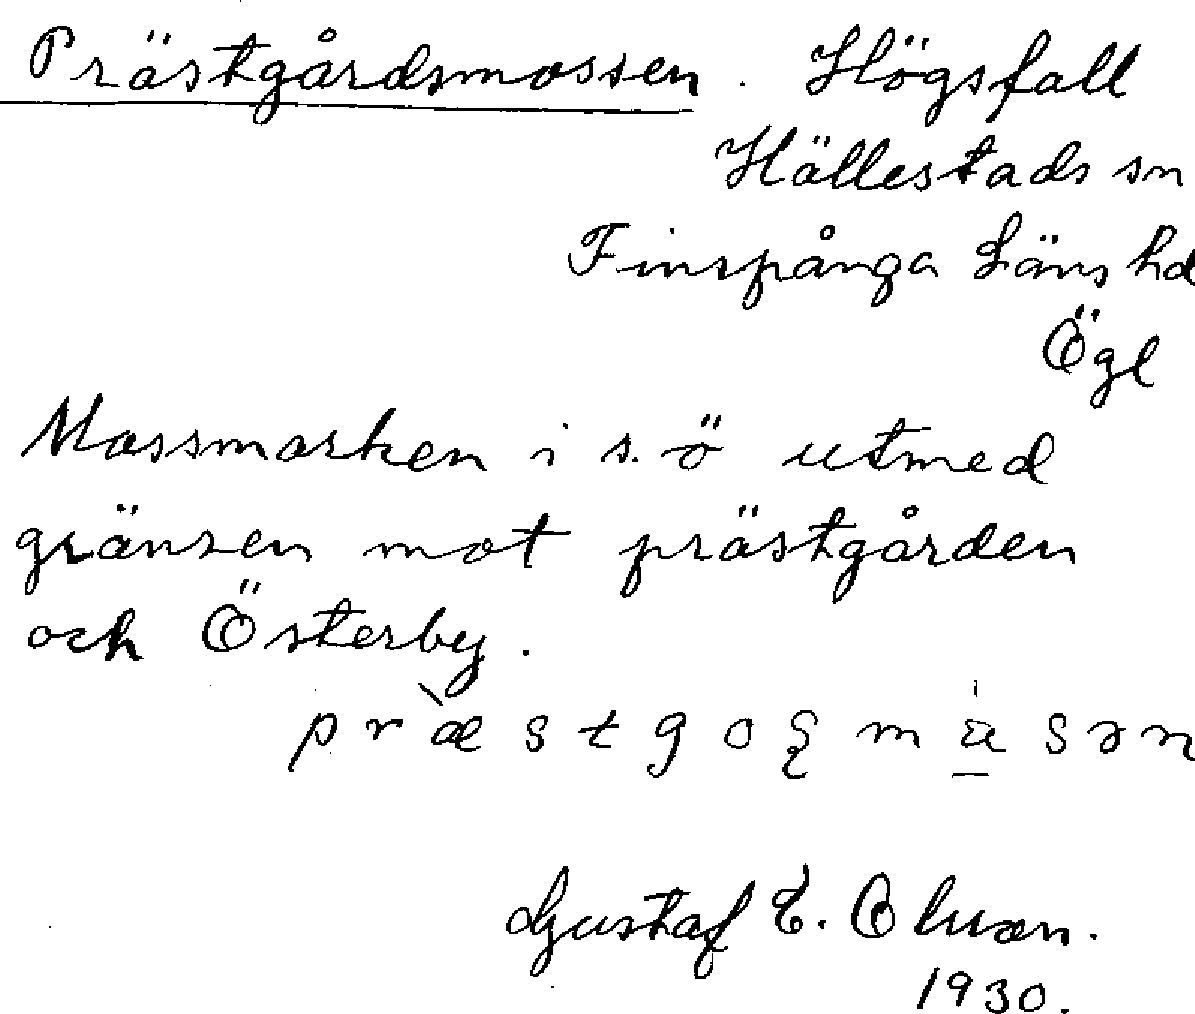 Prästgårdsmossen. Högsfall
Hällestads sn
Finspånga Läns hd
Ögl
Mossmarken i s.ö utmed
gränsen mot prästgården
och Österby.
Gustaf E.
1930.